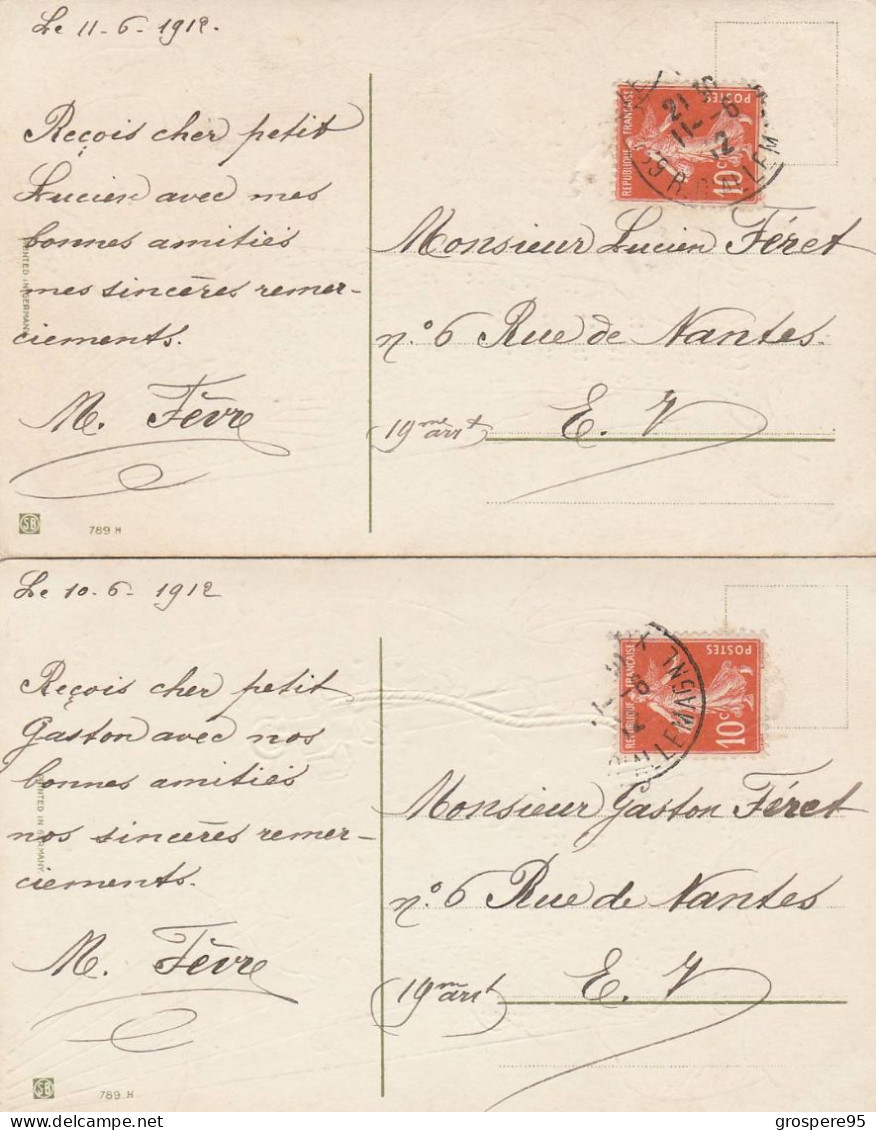 Le 11-6-1912.
Reçois cher petit
Lucien avec mes
bonnes amitiés
mes sincères remer-
ciements.
M. Fèvre
PRINTED IN GERMANY
SB
789 H
POSTES
RÉPUBLIQUE FRANÇAISE
10c
21 30
11--6
12
59 R. D'ALLEM
Monsieur Lucien Féret
n.° 6 Rue de Nantes.
19me arrt
E. V
Le 10-6-1912
Reçois cher petit
Gaston avec nos
bonnes amitiés
nos sincères remer-
ciements.
M. Fèvre
PRINTED IN GERMANY
SB
789 H
POSTES
RÉPUBLIQUE FRANÇAISE
10c
D'ALLEMAGNE
Monsieur Gaston Féret
n.° 6 Rue de Nantes
19m arrt
E. V
grospere95